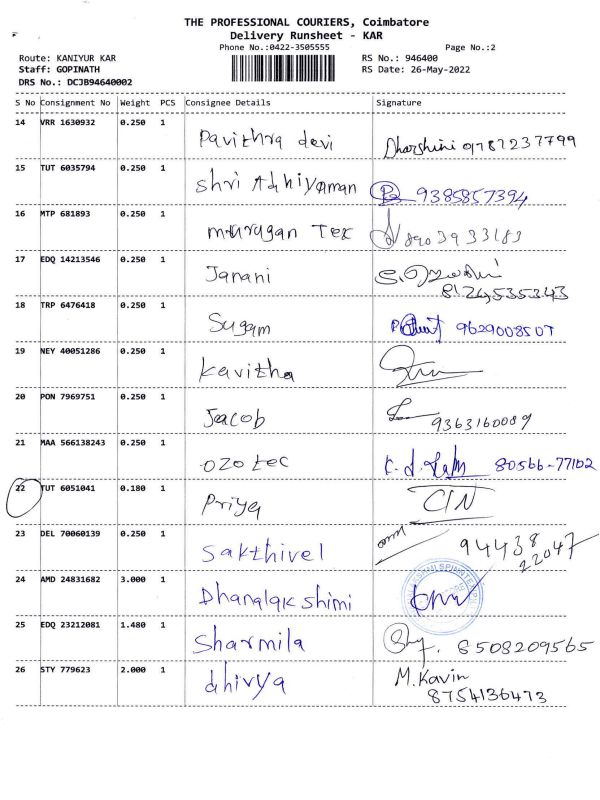 THE PROFESSIONAL COURIERS, Coimbatore
Delivery Runsheet - KAR
Phone No.:0422-3505555 Page No.:2
Route: KANIYUR KAR RS No.: 946400
Staff: GOPINATH RS Date: 26-May-2022
DRS No.: DCJB94640002
S No Consignment No Weight PCS Consignee Details Signature
14 VRR 1630932 0.250 1 Pavithra devi Dharshini 9787237799
15 TUT 6035794 0.250 1 Shri Adhiyaman 9385857394
16 MTP 681893 0.250 1 Murugan Tex 8903933183
17 EDQ 14213546 0.250 1 Janani 8124535343
18 TRP 6476418 0.250 1 Sugam 9629008507
19 NEY 40051286 0.250 1 Kavitha
20 PON 7969751 0.250 1 Jacob 9363160089
21 MAA 566138243 0.250 1 Ozo tec 80566-77102
22 TUT 6051041 0.180 1 Priya
23 DEL 70060139 0.250 1 Sakthivel 94438 22047
24 AMD 24831682 3.000 1 Dhanalakshimi
25 EDQ 23212081 1.480 1 Sharmila 8508209565
26 STY 779623 2.000 1 dhivya M.Kavin
8754136473